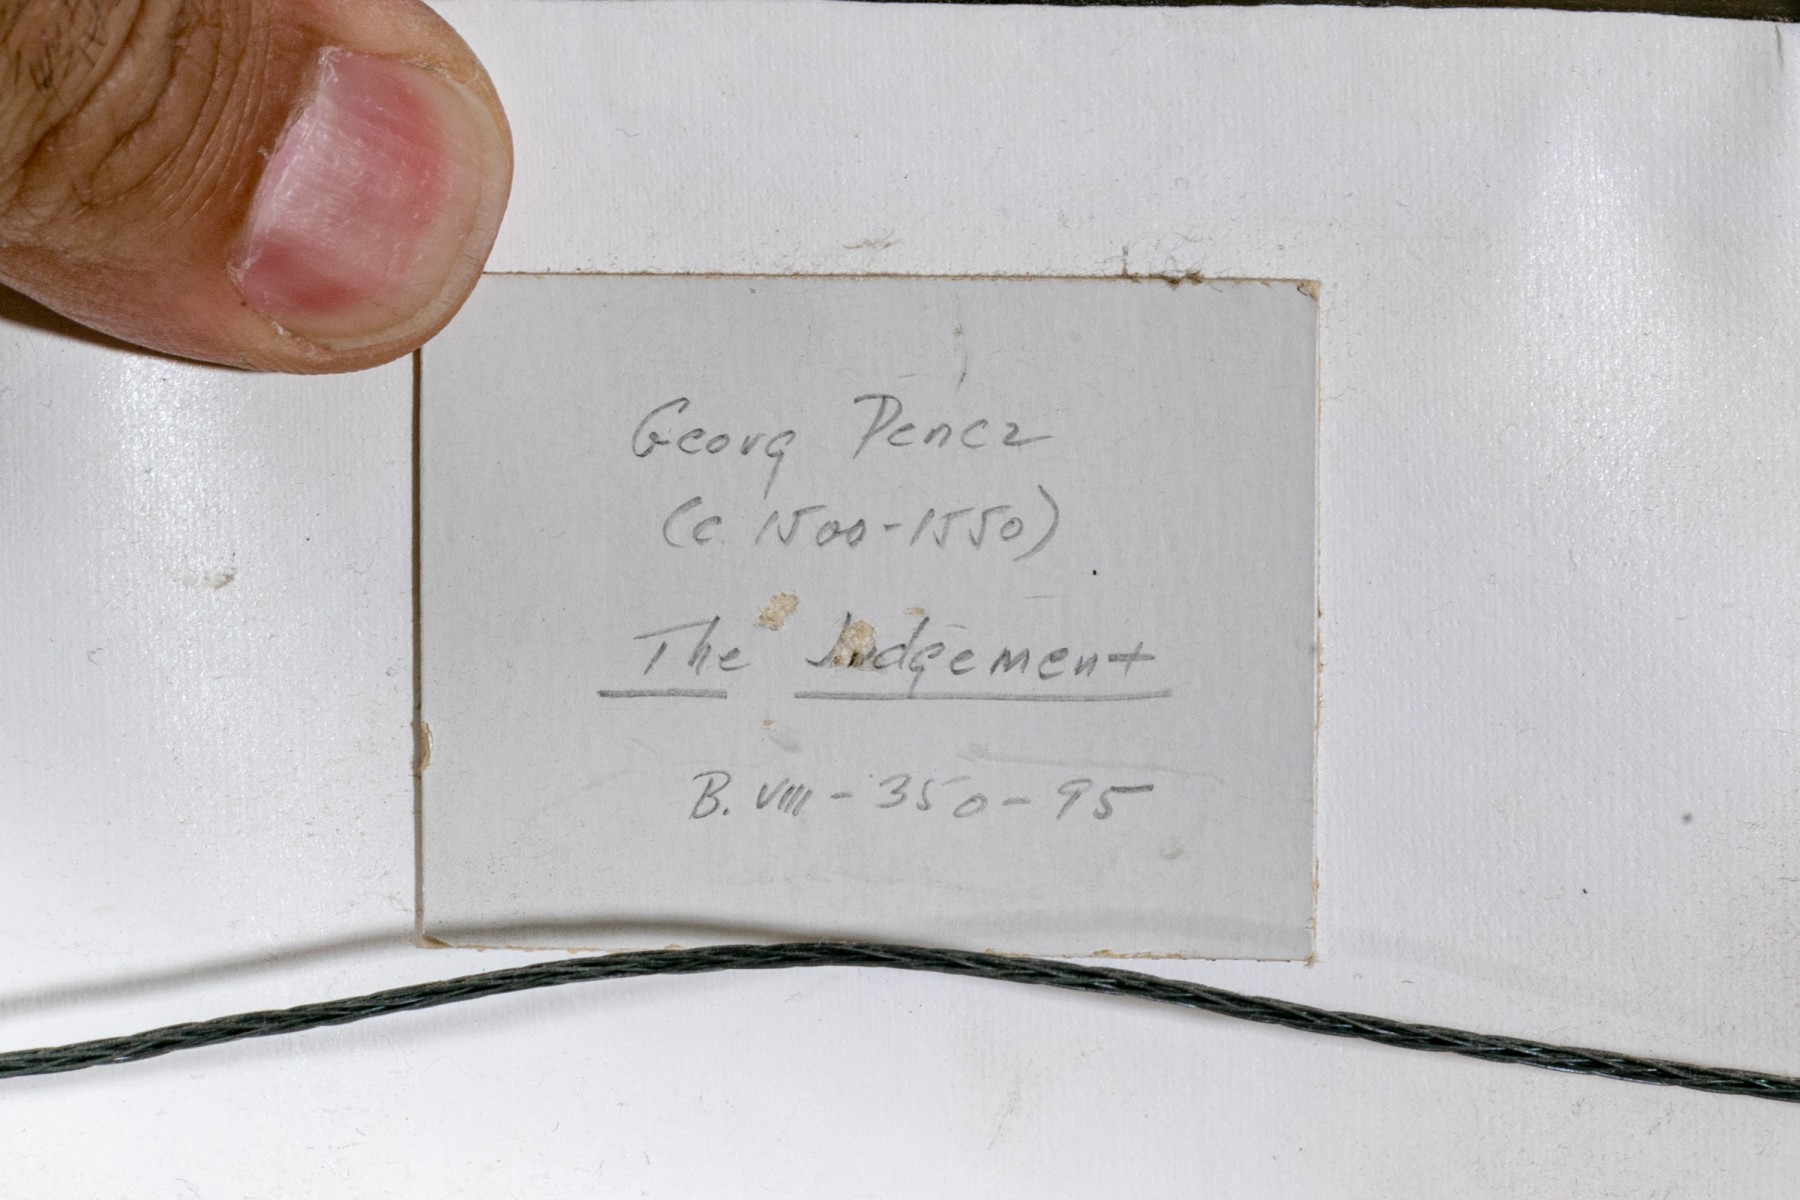 Georg Pencz
(c. 1500-1550)
The Judgement
B. VIII - 350 - 95